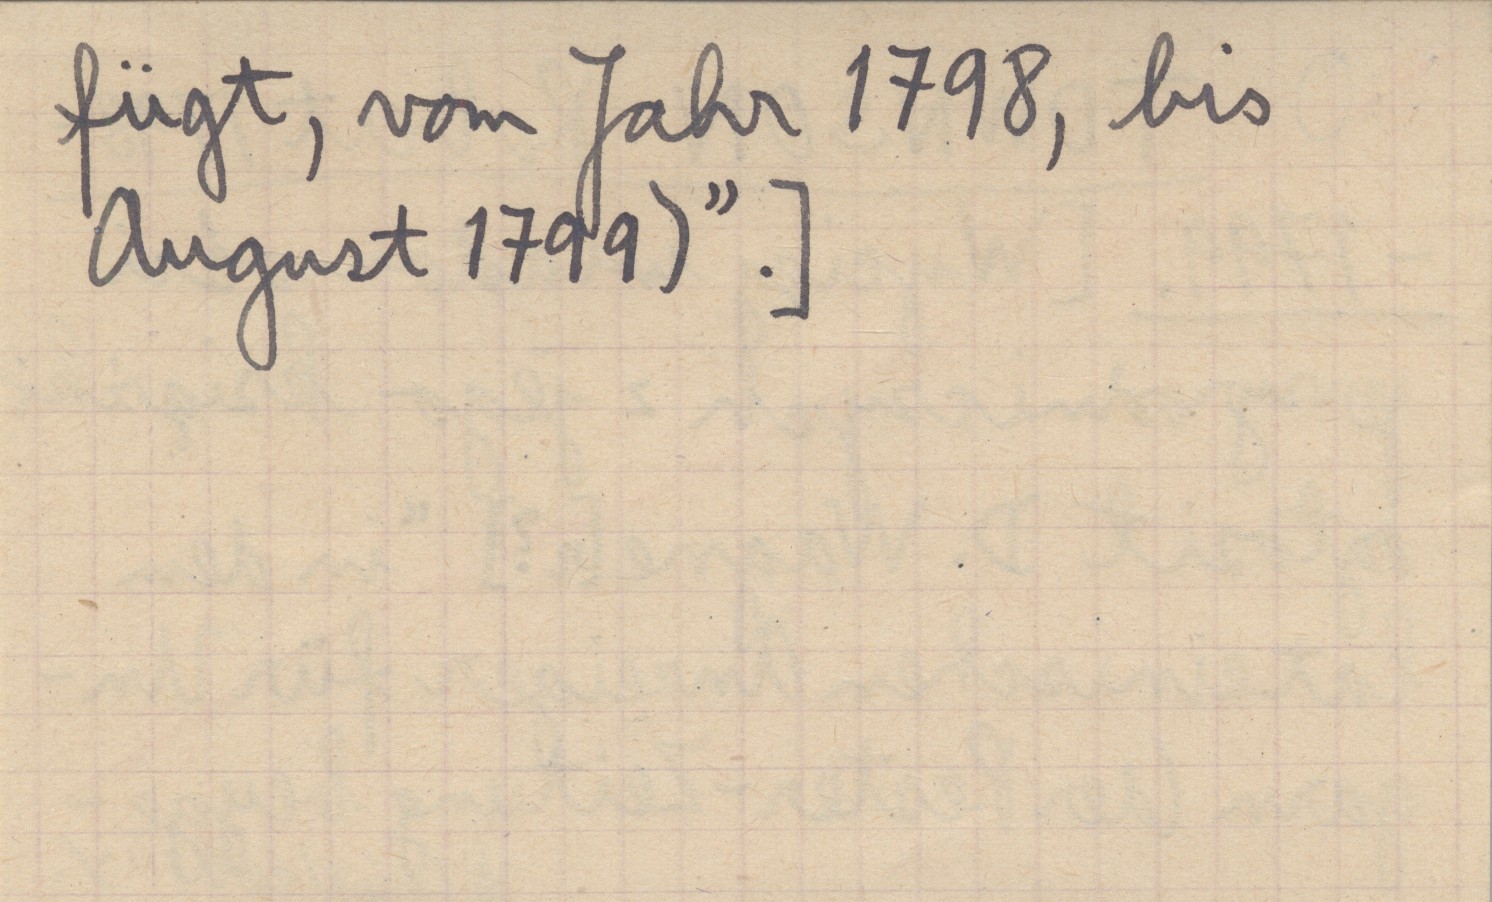 fügt, vom Jahr 1798, bis
August 1799)”.]